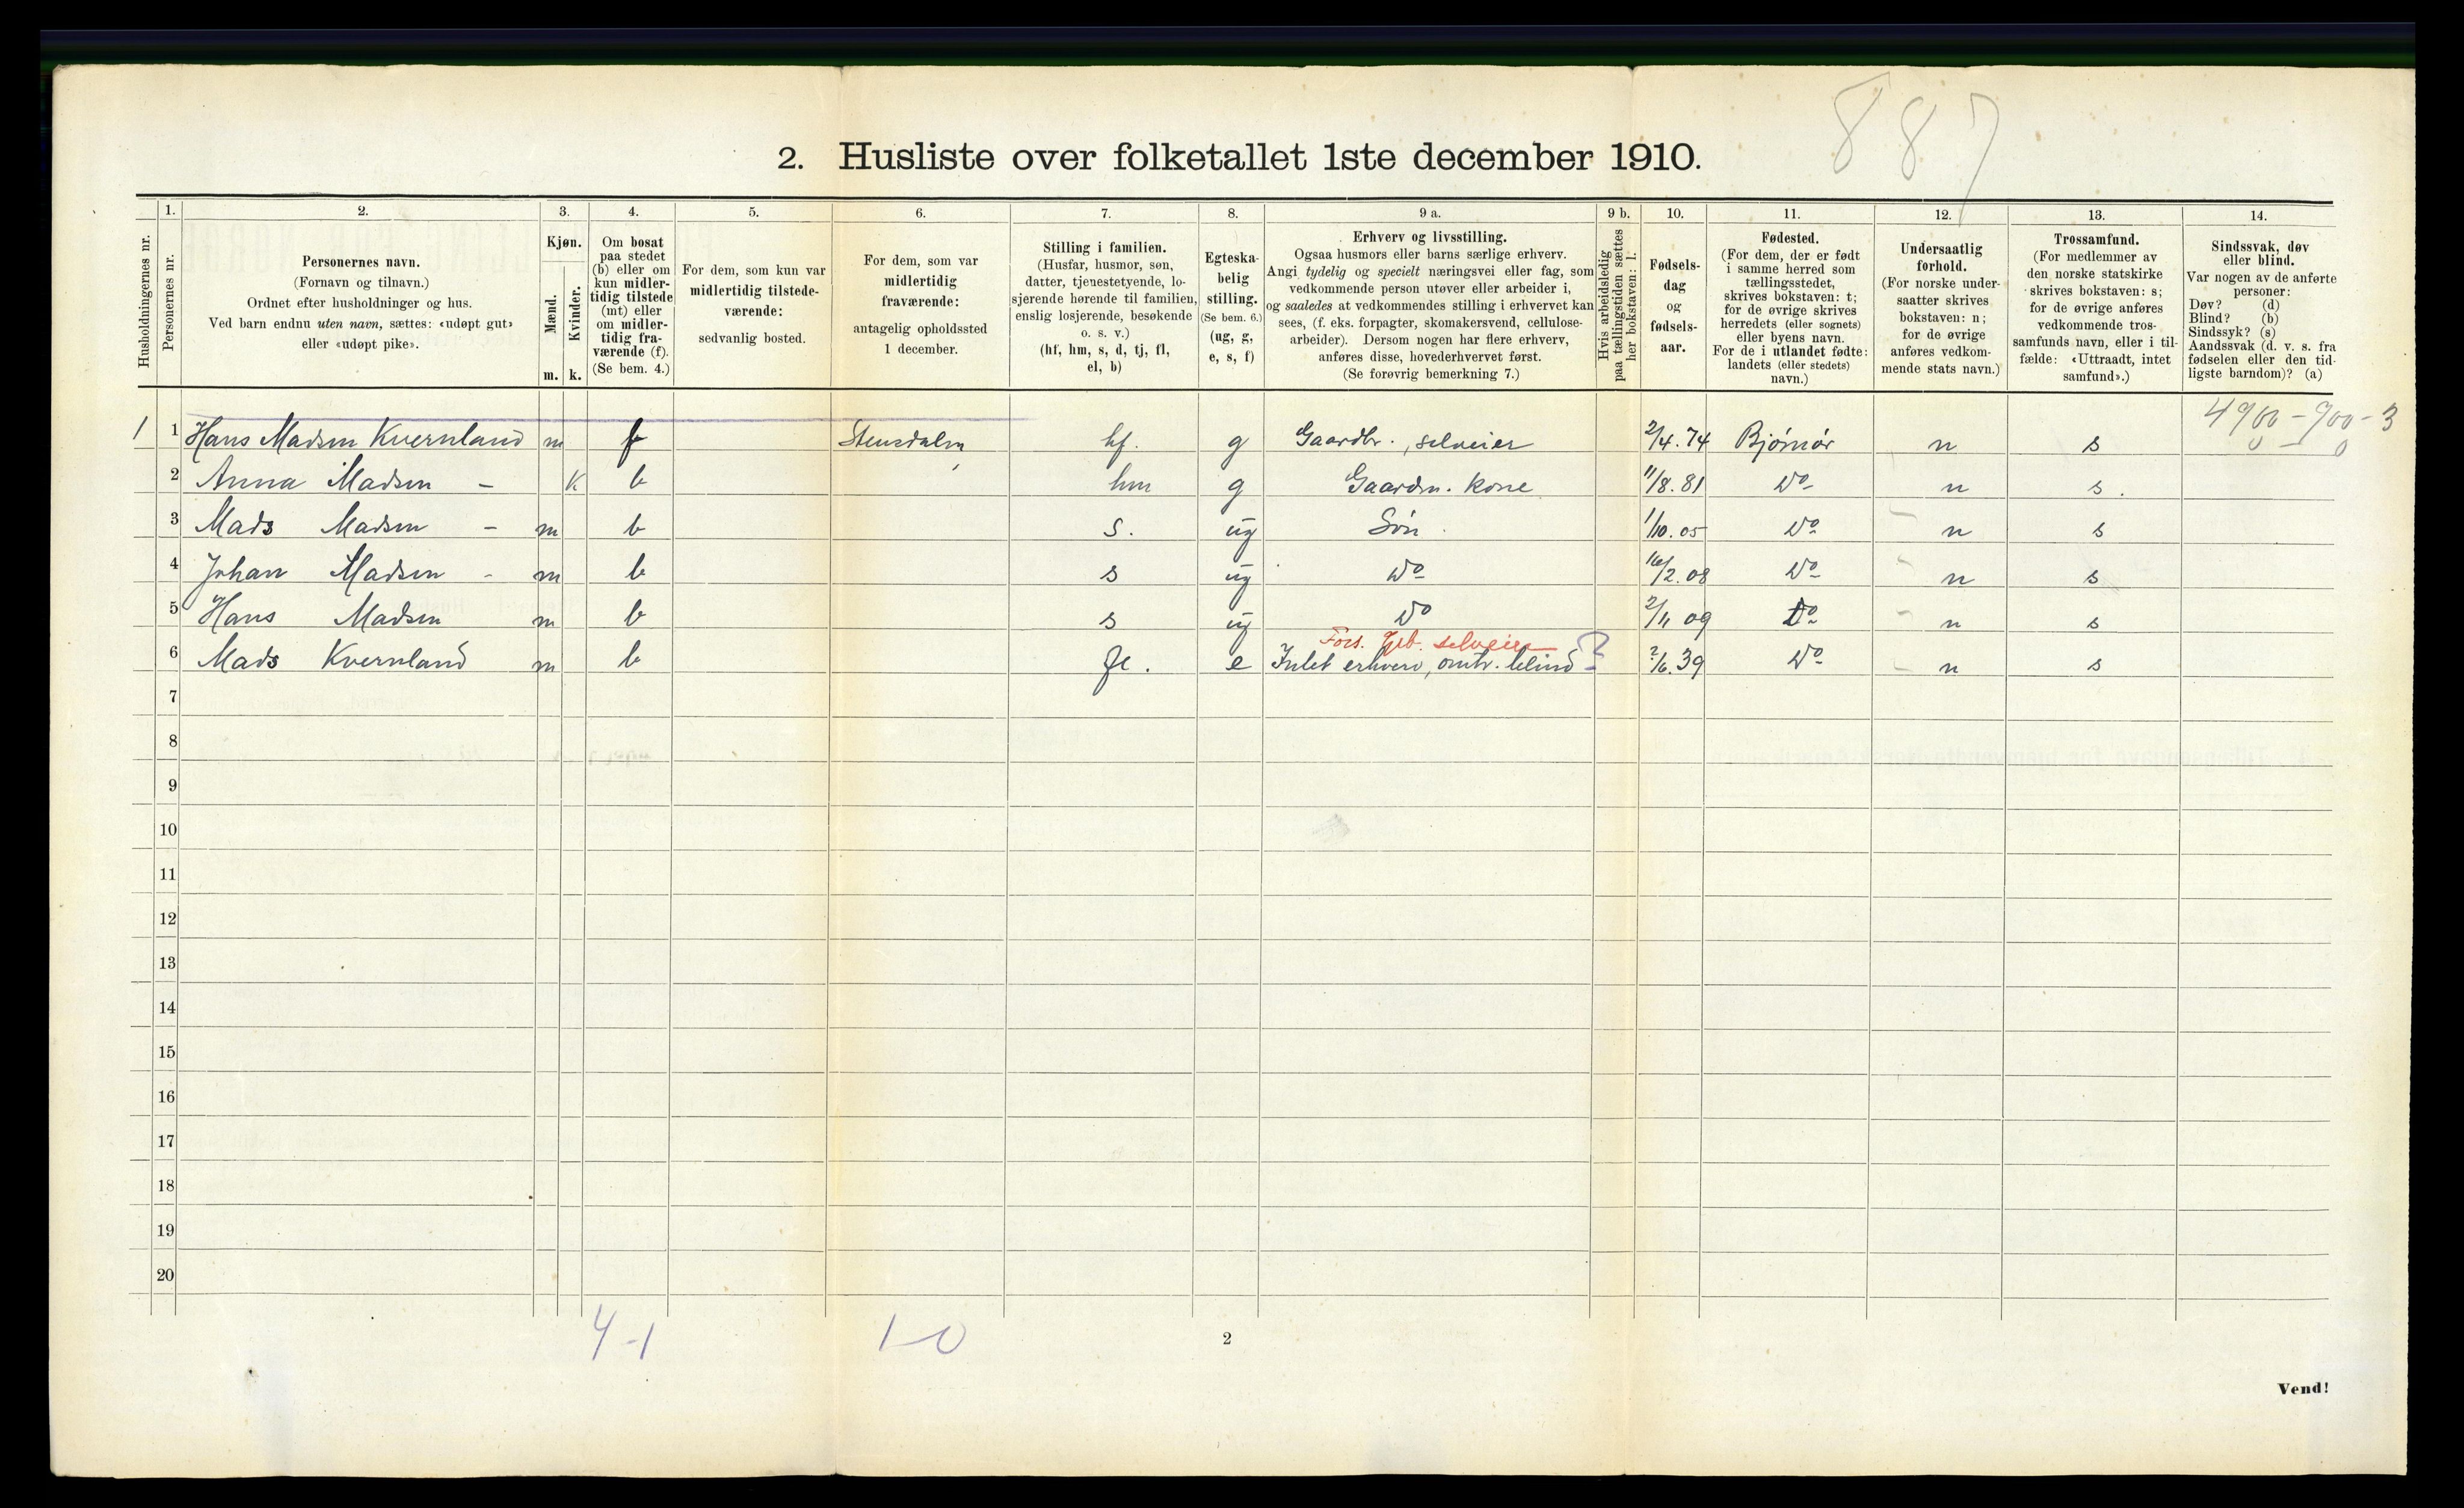 887
2. Husliste over folketallet 1ste december 1910.
Husholdningernes nr.
1.
Personernes nr.
2.
Personernes navn.
(Fornavn og tilnavn.)
Ordnet efter husholdninger og hus.
Ved barn endnu uten navn, sættes: «udøpt gut»
eller «udøpt pike».
3.
Kjøn.
Mænd.
m.
Kvinder.
k.
4.
Om bosat
paa stedet
(b) eller om
kun midler-
tidig tilstede
(mt) eller
om midler-
tidig fra-
værende (f).
(Se bem. 4.)
5.
For dem, som kun var
midlertidig tilstede-
værende:
sedvanlig bosted.
6.
For dem, som var
midlertidig
fraværende:
antagelig opholdssted
1 december.
7.
Stilling i familien.
(Husfar, husmor, søn,
datter, tjenestetyende, lo-
sjerende hørende til familien,
enslig losjerende, besøkende
o. s. v.)
(hf, hm, s, d, tj, fl,
el, b)
8.
Egteska-
belig
stilling.
(Se bem. 6.)
(ug, g,
e, s, f)
9 a.
Erhverv og livsstilling.
Ogsaa husmors eller barns særlige erhverv.
Angi tydelig og specielt næringsvei eller fag, som
vedkommende person utøver eller arbeider i,
og saaledes at vedkommendes stilling i erhvervet kan
sees, (f. eks. forpagter, skomakersvend, cellulose-
arbeider). Dersom nogen har flere erhverv,
anføres disse, hovederhvervet først.
(Se forøvrig bemerkning 7.)
9 b.
Hvis arbeidsledig
paa tællingstiden sættes
her bokstaven: l.
10.
Fødsels-
dag
og
fødsels-
aar.
11.
Fødested.
(For dem, der er født
i samme herred som
tællingsstedet,
skrives bokstaven: t;
for de øvrige skrives
herredets (eller sognets)
eller byens navn.
For de i utlandet fødte:
landets (eller stedets)
navn.)
12.
Undersaatlig
forhold.
(For norske under-
saatter skrives
bokstaven: n;
for de øvrige
anføres vedkom-
mende stats navn.)
13.
Trossamfund.
(For medlemmer av
den norske statskirke
skrives bokstaven: s;
for de øvrige anføres
vedkommende tros-
samfunds navn, eller i til-
fælde: «Uttraadt, intet
samfund».)
14.
Sindssvak, døv
eller blind.
Var nogen av de anførte
personer:
Døv? (d)
Blind? (b)
Sindssyk? (s)
Aandssvak (d. v. s. fra
fødselen eller den tid-
ligste barndom)? (a)
4900-900-3
0 - 0
1 1 Hans Madsen Kvernland m f Stensdalen hf. g Gaardbr., selveier 2/4.74 Bjørnør n s
2 Anna Madsen - k b hm g Gaardm. kone 11/8.81 Do n s.
3 Mads Madsen - m b s. ug Søn. 1/10.05 Do n s
4 Johan Madsen - m b s ug Do 16/2.08 Do n s
5 Hans Madsen m b s ug Do 2/11 09 Do n s
Fors. Gbr. selveier
6 Mads Kvernland m b fl. e Intet erhverv, omtr. blind ? 2/6.39 Do n s
7
8
9
10
11
12
13
14
15
16
17
18
19
20
4-1
1-0
2
Vend!